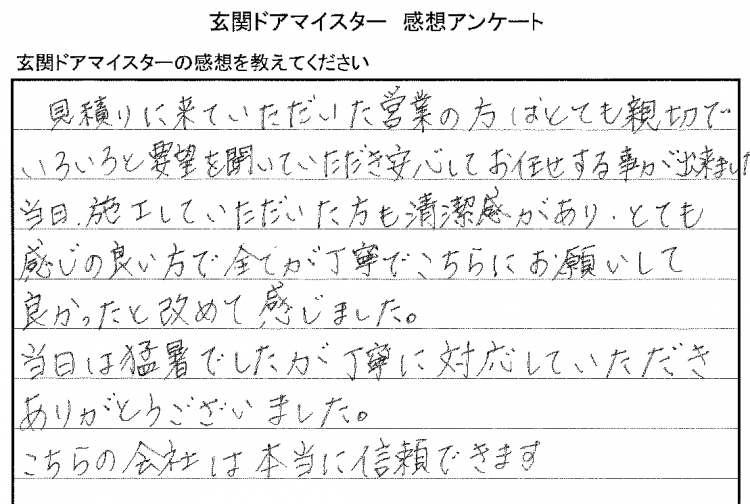 玄関ドアマイスター 感想アンケート
玄関ドアマイスターの感想を教えてください
見積りに来ていただいた営業の方はとても親切で
いろいろと要望を聞いていただき安心してお任せする事が出来ました
当日、施工していただいた方も清潔感があり、とても
感じの良い方で全てが丁寧でこちらにお願いして
良かったと改めて感じました。
当日は猛暑でしたが丁寧に対応していただき
ありがとうございました。
こちらの会社は本当に信頼できます